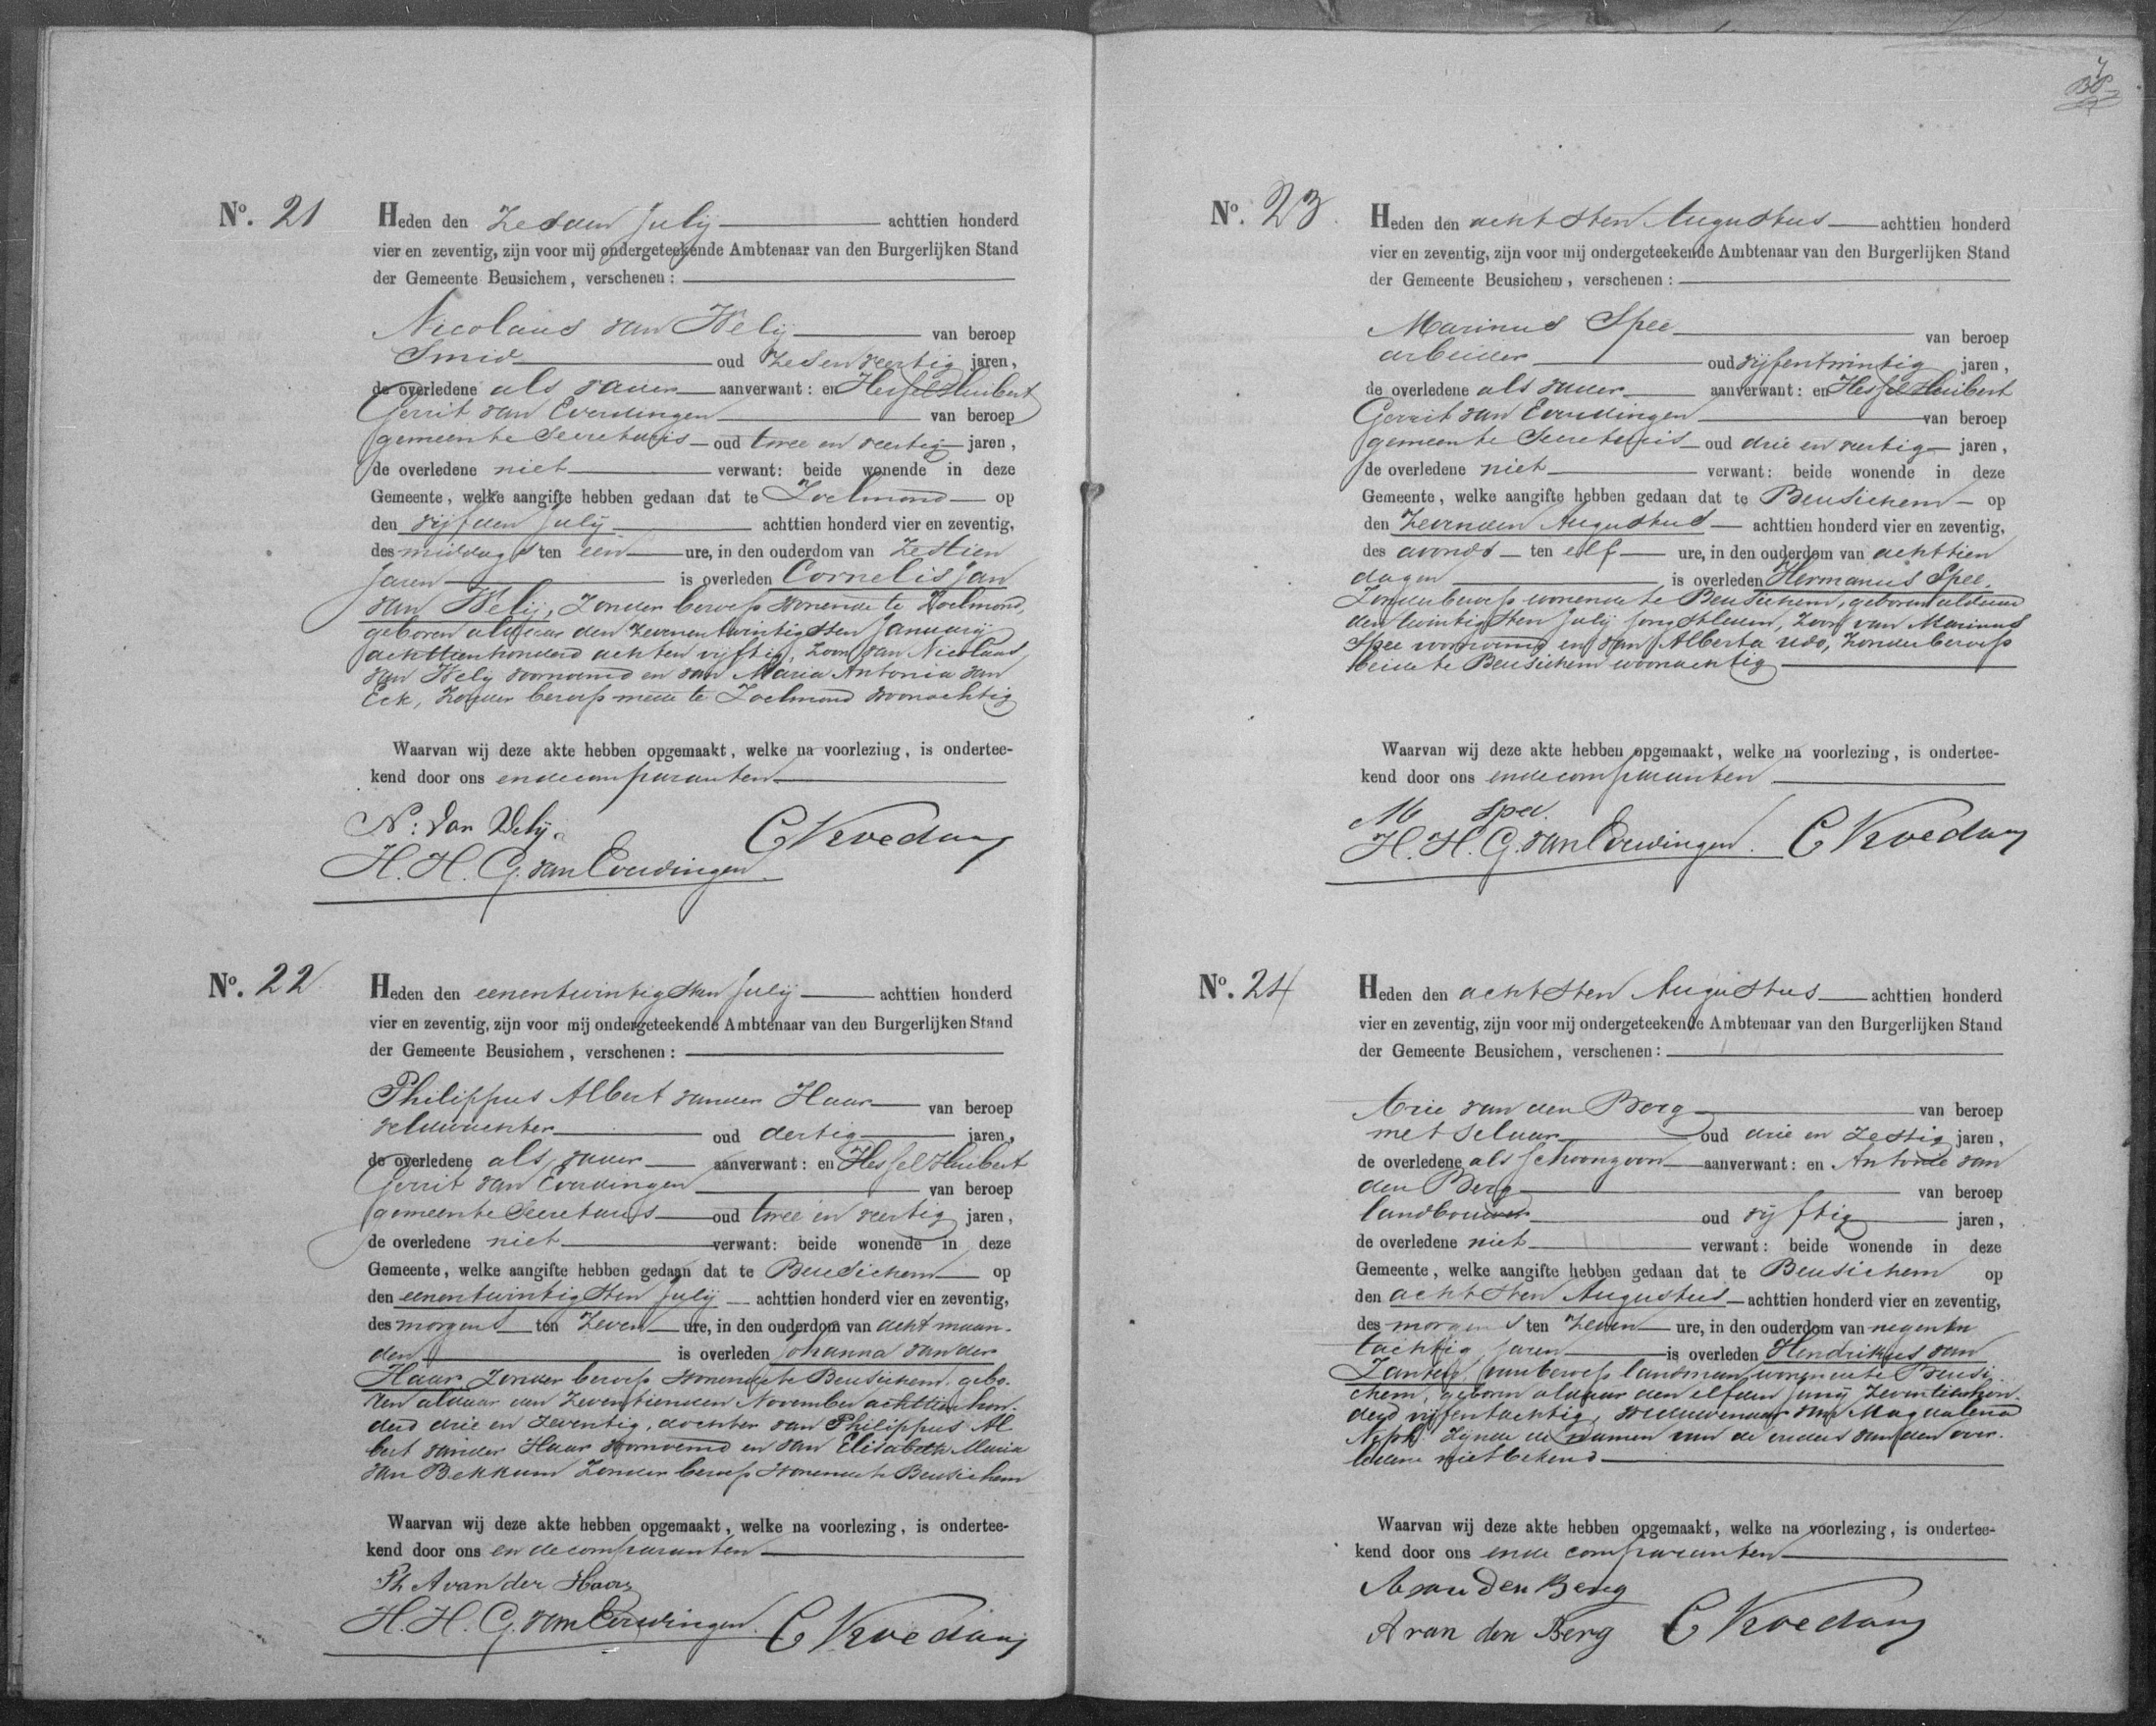 No. 21
Heden den Zesden July achttien honderd
vier en zeventig, zijn voor mij ondergeteekende Ambtenaar van den Burgerlijken Stand
der Gemeente Beusichem, verschenen:
Nicolaas van Wely van beroep
Smid oud Zesenveertig jaren,
de overledene als vader aanverwant: en Hessel Huibert
Gerrit van Everdingen van beroep
gemeente Secretaris oud twee en veertig jaren,
de overledene niet verwant: beide wonende in deze
Gemeente, welke aangifte hebben gedaan dat te Zoelmond op
den vijfden July achttien honderd vier en zeventig,
des middags ten een ure, in den ouderdom van Zestien
jaren is overleden Cornelis Jan
van Wely, Zonder beroep wonende te Zoelmond,
geboren aldaar den Zevenentwintigsten January
achttienhonderd achtenvijftig, Zoon van Nicolaas
van Wely voornoemd en van Maria Antonia van
Eck, Zonder beroep mede te Zoelmond woonachtig
Waarvan wij deze akte hebben opgemaakt, welke na voorlezing, is ondertee-
kend door ons en de comparanten
N: van Wely.
C Kroedam
H. H. G. van Everdingen.
No. 22
Heden den eenentwintigsten July achttien honderd
vier en zeventig, zijn voor mij ondergeteekende Ambtenaar van den Burgerlijken Stand
der Gemeente Beusichem, verschenen:
Philippus Albert van der Haar van beroep
veldwachter oud dertig jaren,
de overledene als vader aanverwant: en Hessel Huibert
Gerrit van Everdingen van beroep
gemeente Secretaris oud twee en veertig jaren,
de overledene niet verwant: beide wonende in deze
Gemeente, welke aangifte hebben gedaan dat te Beusichem op
den eenentwintigsten July achttien honderd vier en zeventig,
des morgens ten Zeven ure, in den ouderdom van acht maan-
den is overleden Johanna van der
Haar Zonder beroep wonende te Beusichem, gebo-
ren aldaar den Zeventienden November achttienhon-
derd drie en Zeventig, dochter van Philippus Al
bert van der Haar voornoemd en van Elisabeth Maria
van Bekkum Zonder beroep wonende te Beusichem
Waarvan wij deze akte hebben opgemaakt, welke na voorlezing, is ondertee-
kend door ons en de comparanten
Ph A van der Haar
H. H. G. van Everdingen. C Kroedam
No. 23
Heden den achtsten Augustus achttien honderd
vier en zeventig, zijn voor mij ondergeteekende Ambtenaar van den Burgerlijken Stand
der Gemeente Beusichem, verschenen:
Marinus Spee van beroep
arbeider oud vijfentwintig jaren,
de overledene als vader aanverwant: en Hessel Huibert
Gerrit van Everdingen van beroep
gemeente Secretaris oud drie en veertig jaren,
de overledene niet verwant: beide wonende in deze
Gemeente, welke aangifte hebben gedaan dat te Beusichem op
den Zevenden Augustus achttien honderd vier en zeventig,
des avonds ten elf ure, in den ouderdom van achttien
dagen is overleden Hermanus Spee,
Zonder beroep wonende te Beusichem, geboren aldaar
den twintigsten July jongstleden, Zoon van Marinus
Spee voornoemd en van Alberta Udo, Zonder beroep
beide te Beusichem woonachtig
Waarvan wij deze akte hebben opgemaakt, welke na voorlezing, is ondertee-
kend door ons en de comparanten
M Spee.
H. H. G. van Everdingen. C Kroedam
No. 24
Heden den achtsten Augustus achttien honderd
vier en zeventig, zijn voor mij ondergeteekende Ambtenaar van den Burgerlijken Stand
der Gemeente Beusichem, verschenen:
Arie van den Berg van beroep
metselaar oud drie en Zestig jaren,
de overledene als schoonzoon aanverwant: en Antonie van
den Berg van beroep
landbouwer oud vijftig jaren,
de overledene niet verwant: beide wonende in deze
Gemeente, welke aangifte hebben gedaan dat te Beusichem op
den achtsten Augustus achttien honderd vier en zeventig,
des morgens ten Zeven ure, in den ouderdom van negenen
tachtig jaren is overleden Hendrikus van
Zanten, van beroep landman, wonende te Beusi-
chem, geboren aldaar den elfden Juny Zeventienhon-
derd vijfentachtig, weduwenaar van Magdalena
Zijnde de namen van de ouders van den over-
ledene niet bekend
Waarvan wij deze akte hebben opgemaakt, welke na voorlezing, is ondertee-
kend door ons en de comparanten
A van den Berg
A van den Berg C Kroedam